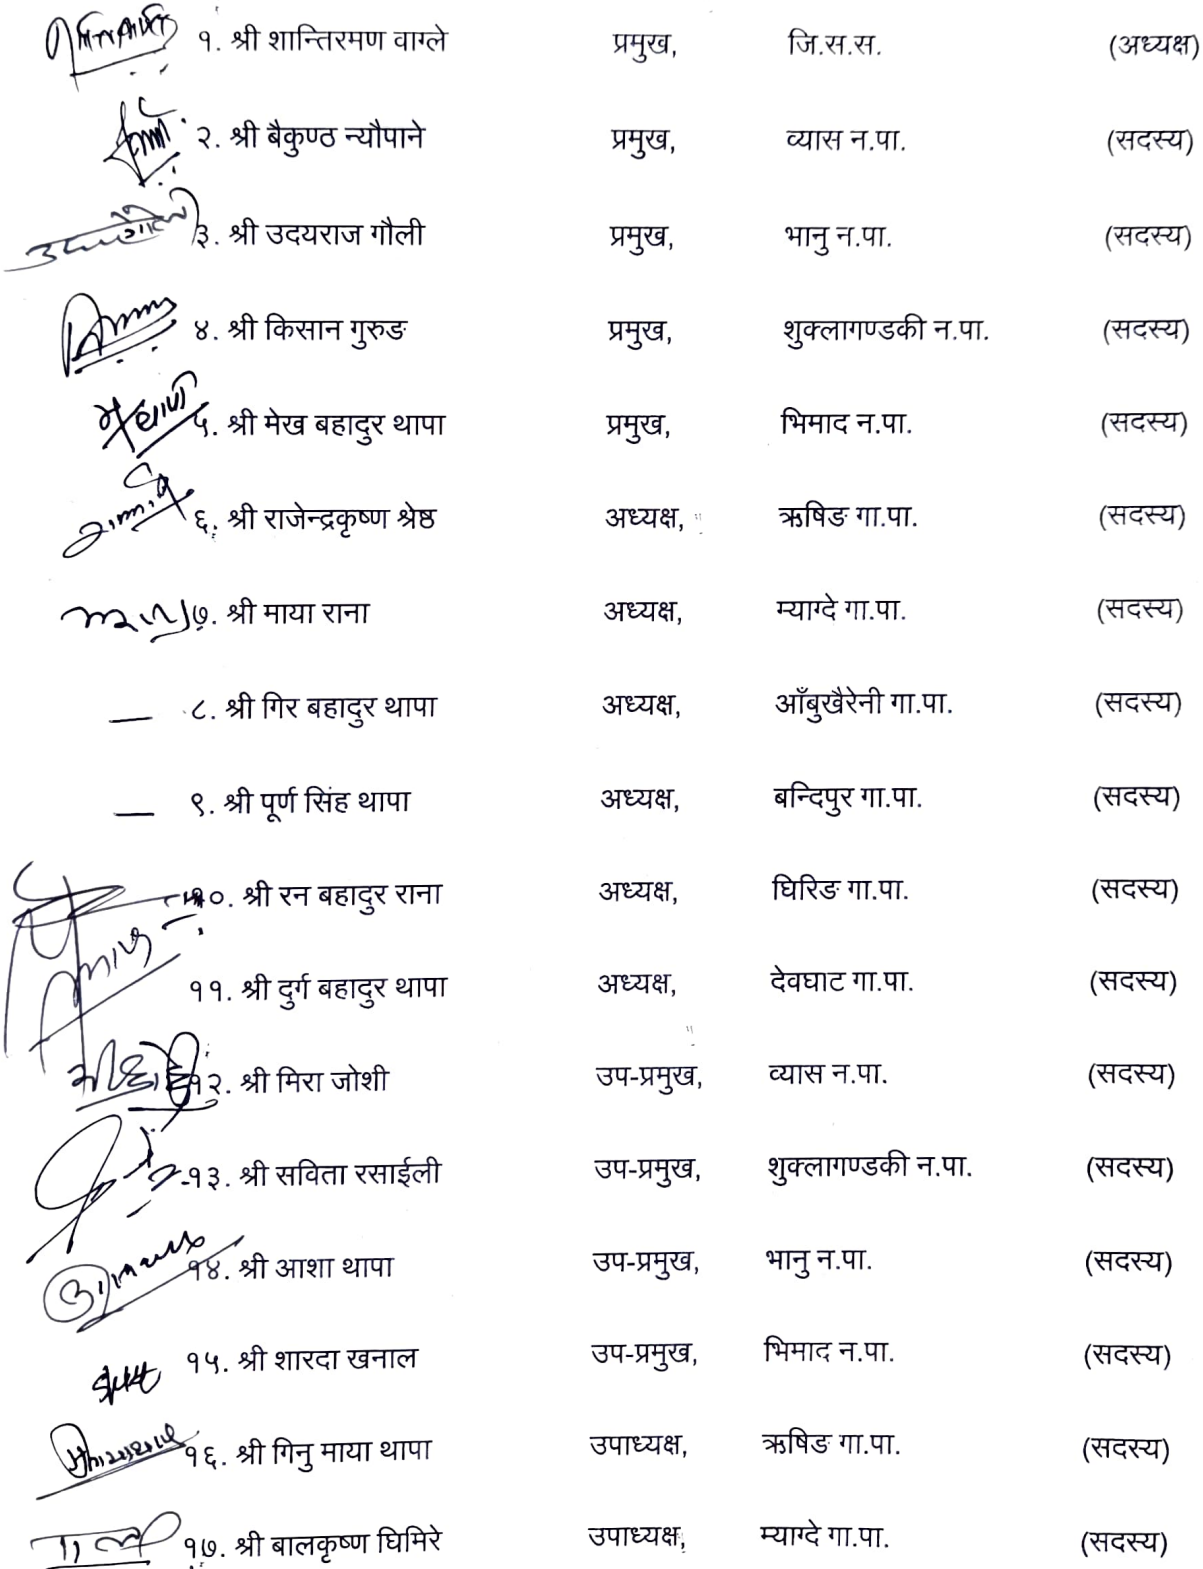 १. श्री शान्तिरमण वाग्ले प्रमुख, जि.स.स. (अध्यक्ष)
२. श्री बैकुण्ठ न्यौपाने प्रमुख, व्यास न.पा. (सदस्य)
३. श्री उदयराज गौली प्रमुख, भानु न.पा. (सदस्य)
४. श्री किसान गुरुङ प्रमुख, शुक्लागण्डकी न.पा. (सदस्य)
५. श्री मेख बहादुर थापा प्रमुख, भिमाद न.पा. (सदस्य)
६. श्री राजेन्द्रकृष्ण श्रेष्ठ अध्यक्ष, ऋषिङ गा.पा. (सदस्य)
७. श्री माया राना अध्यक्ष, म्याग्दे गा.पा. (सदस्य)
८. श्री गिर बहादुर थापा अध्यक्ष, आँबुखैरेनी गा.पा. (सदस्य)
९. श्री पूर्ण सिंह थापा अध्यक्ष, बन्दिपुर गा.पा. (सदस्य)
१०. श्री रन बहादुर राना अध्यक्ष, घिरिङ गा.पा. (सदस्य)
११. श्री दुर्ग बहादुर थापा अध्यक्ष, देवघाट गा.पा. (सदस्य)
१२. श्री मिरा जोशी उप-प्रमुख, व्यास न.पा. (सदस्य)
१३. श्री सविता रसाईली उप-प्रमुख, शुक्लागण्डकी न.पा. (सदस्य)
१४. श्री आशा थापा उप-प्रमुख, भानु न.पा. (सदस्य)
१५. श्री शारदा खनाल उप-प्रमुख, भिमाद न.पा. (सदस्य)
१६. श्री गिनु माया थापा उपाध्यक्ष, ऋषिङ गा.पा. (सदस्य)
१७. श्री बालकृष्ण घिमिरे उपाध्यक्ष, म्याग्दे गा.पा. (सदस्य)